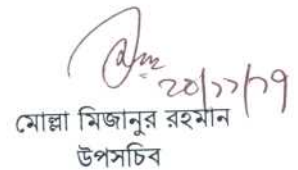 ২০/১১/১৭
মোল্লা মিজানুর রহমান
উপসচিব